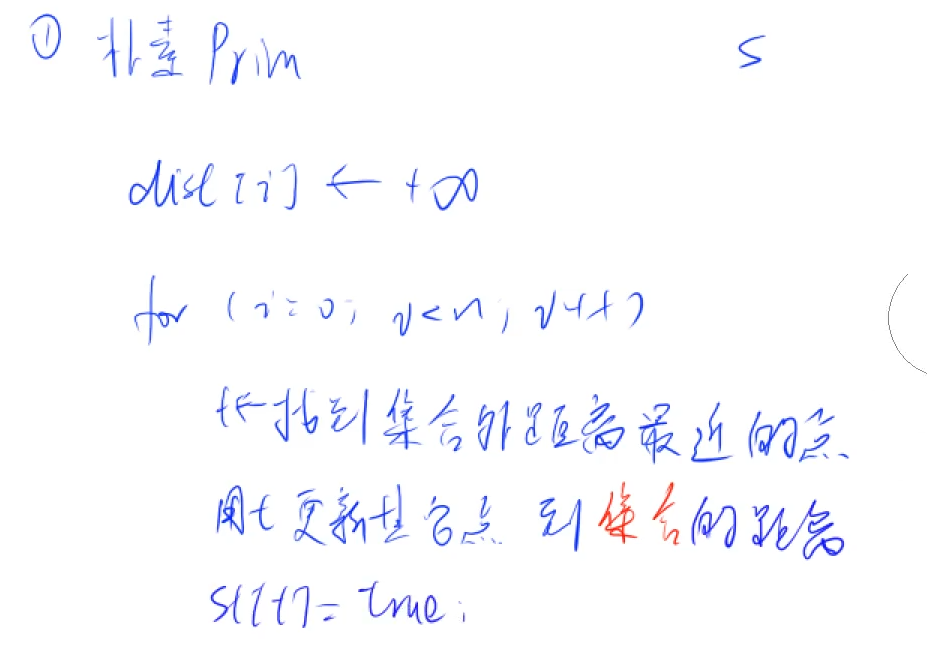 ① 朴素 Prim S
dist[i] ← +∞
for (i=0; i<n; i++)
t ← 找到集合外距离最近的点
用t更新其它点到集合的距离
st[t]=true;